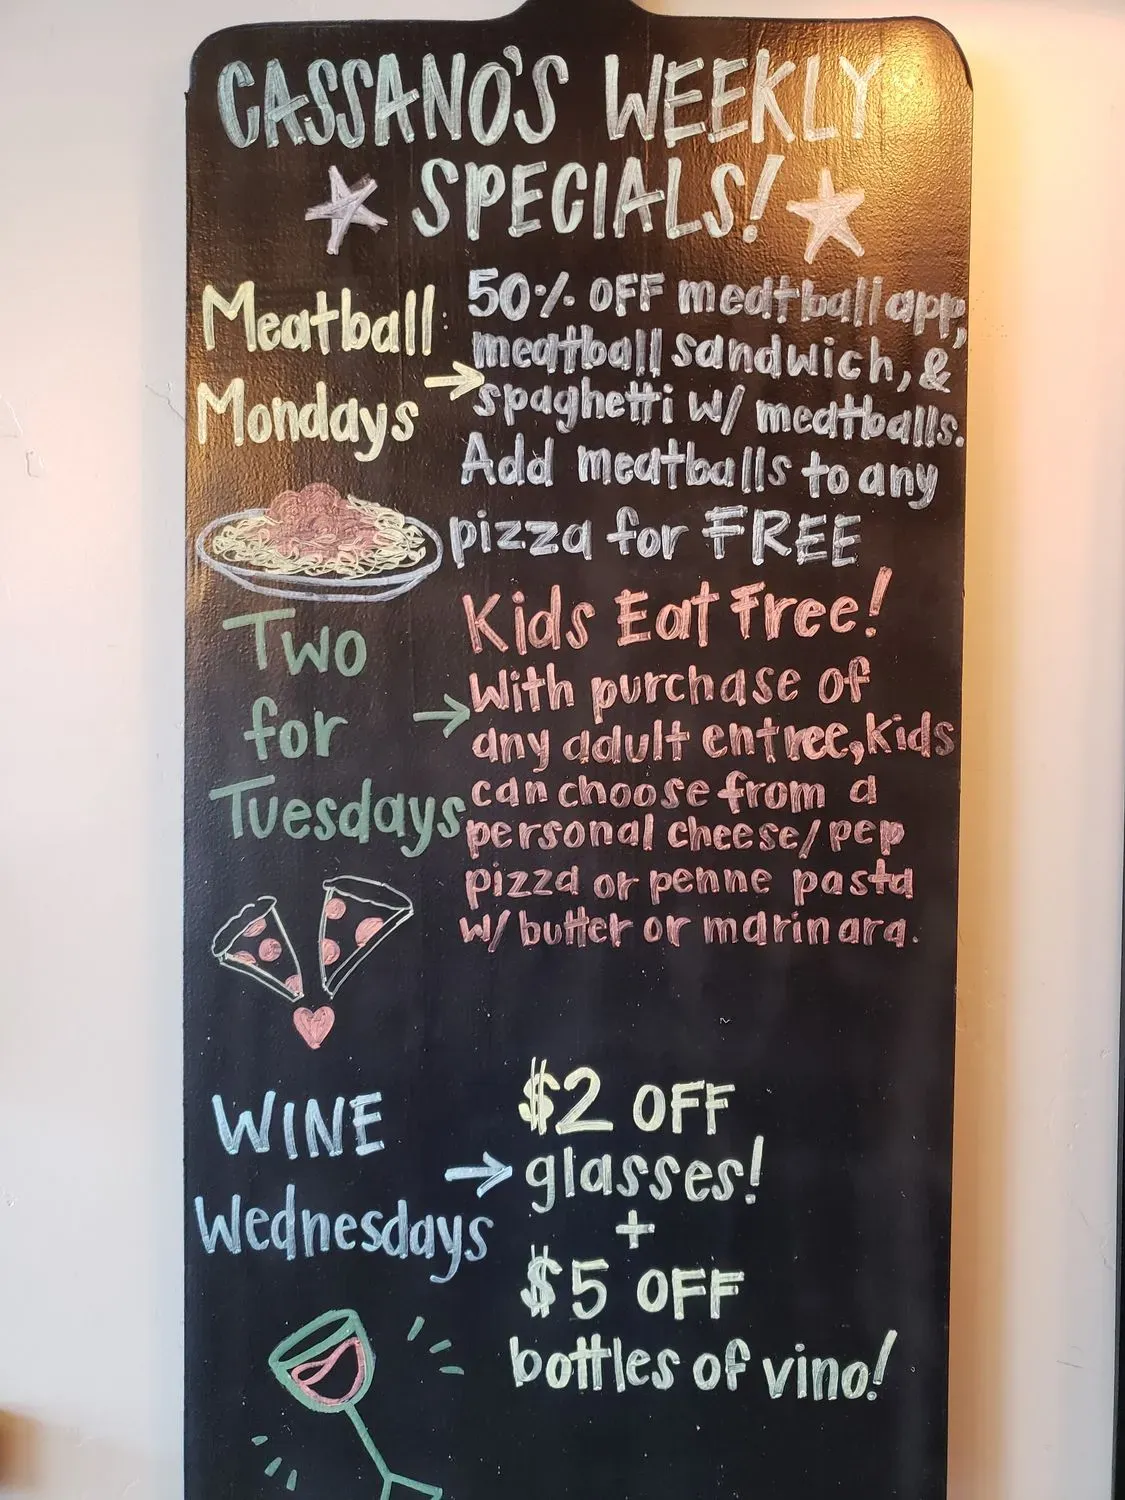 CASSANO'S WEEKLY
SPECIALS!
Meatball
Mondays
50% OFF meatball app,
meatball sandwich, &
spaghetti w/ meatballs.
Add meatballs to any
pizza for FREE
Two
for
Tuesdays
Kids Eat Free!
With purchase of
any adult entree, kids
can choose from a
personal cheese/pep
pizza or penne pasta
w/ butter or marinara.
WINE
Wednesdays
$2 OFF
glasses!
+
$5 OFF
bottles of vino!